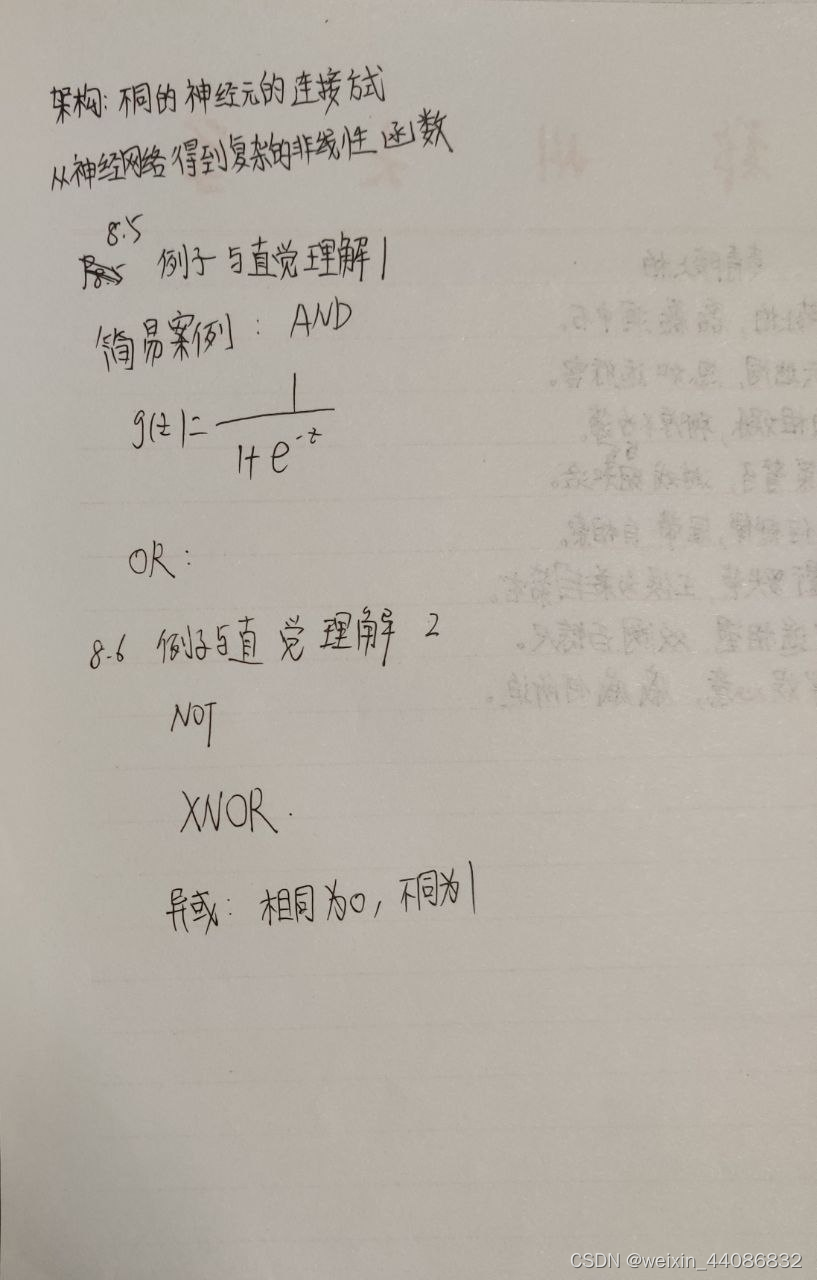 架构: 不同的神经元的连接方式
从神经网络得到复杂的非线性函数
8.5
例子与直觉理解1
简易案例: AND
g(z)= 1 / 1+e^-z
OR:
8.6 例子与直觉理解 2
NOT
XNOR.
异或: 相同为0, 不同为1
CSDN @weixin_44086832